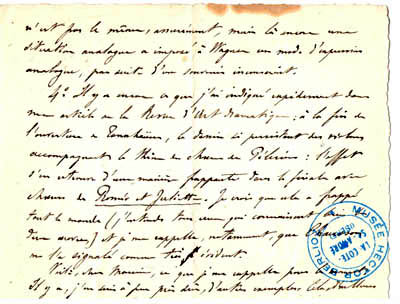 n'est pas le même, assurément, mais là encore une
situation analogue a imposé à Wagner un mode d'expression
analogue, par suite d'un souvenir inconscient.
4° Il y a encore ce que j'ai indiqué rapidement dans
mon article de la Revue d'Art dramatique, à la fin de
l'ouverture de Tannhäuser, le dessin si persistant des violons
accompagnant le thème du chœur des Pèlerins : l'effet
d'un d'une manière frappante dans le final avec
chœurs de Roméo et Juliette. Je crois que cela a frappé
tout le monde (j'entends tous ceux qui connaissent les
deux œuvres) et je me rappelle, notamment, que
me l'a signalé comme très évident.
Voilà, cher Monsieur, ce que je me rappelle pour
Il y a, j'en suis à peu près sûr, d'autres exemples
MUSÉE HECTOR BERLIOZ
LA CÔTE
ST ANDRÉ